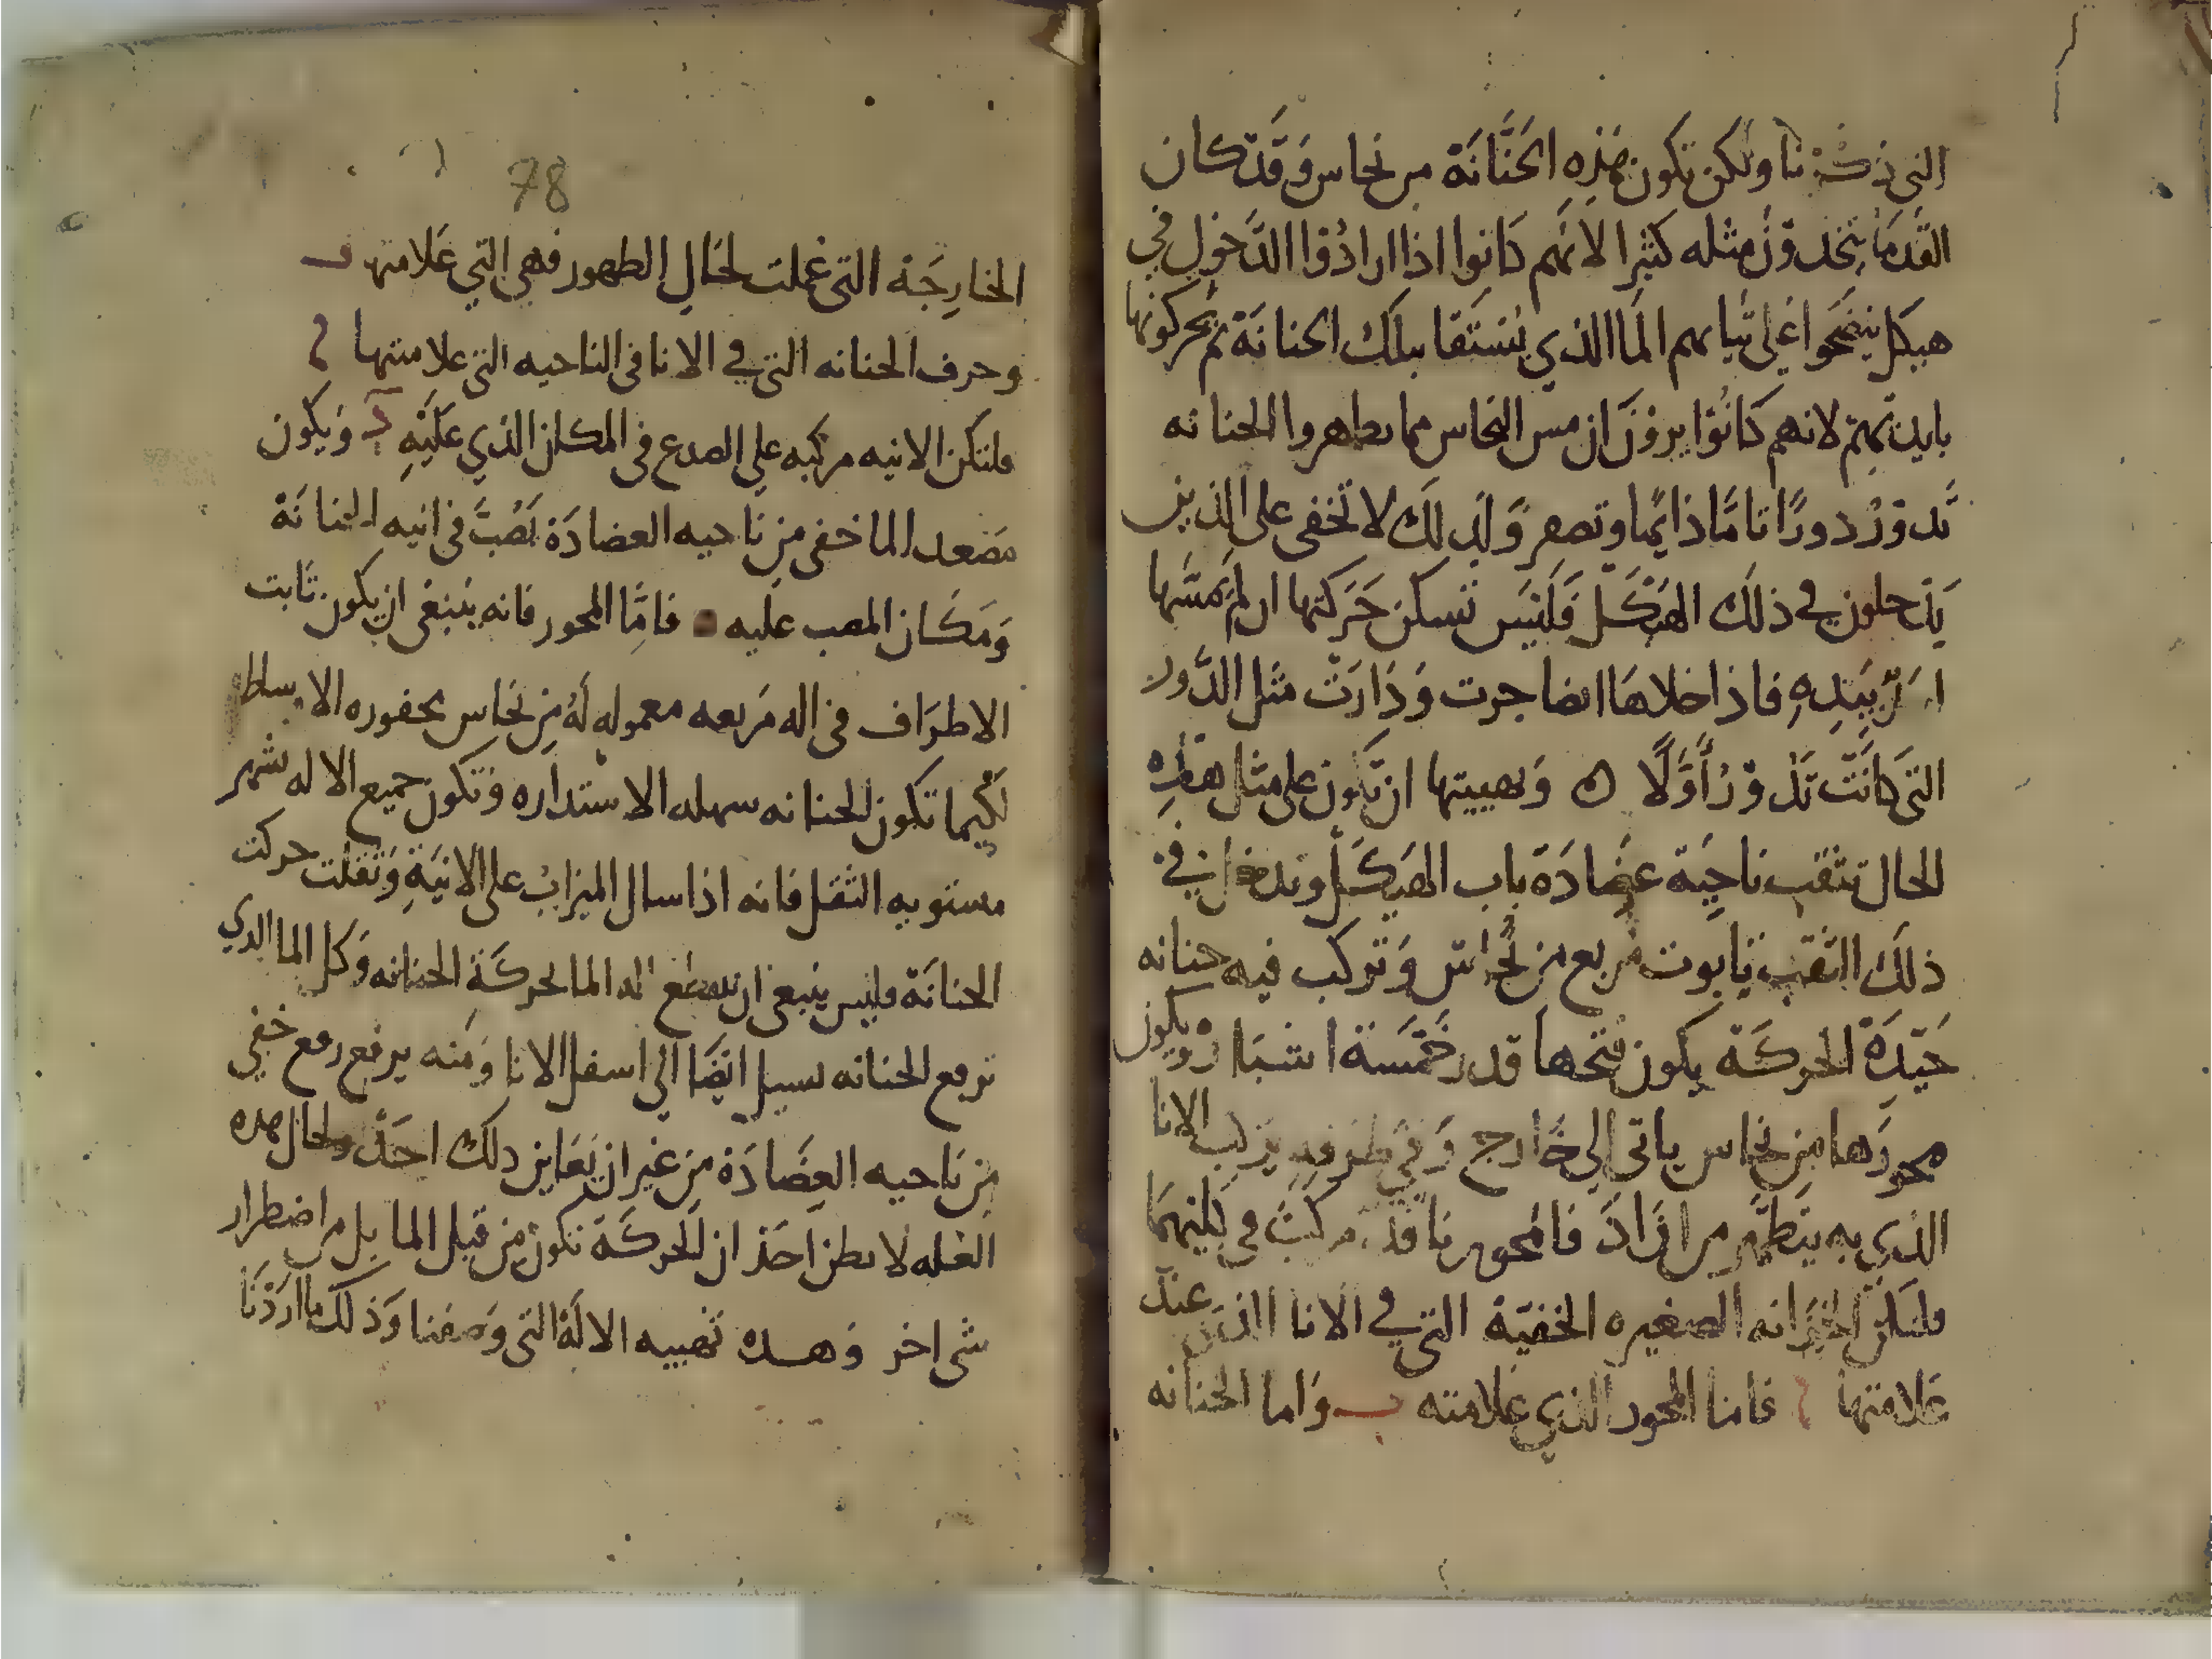 التي ذكرنا ولكن تكون هَذِهِ الحَنَّانَة من نحاس وَقَد كان
القدمَا يتخدوُن مثله كثيرا لانهم كانوا اذا ارادُوا الدَّخول في
هيكل ينضحوا عَلى ثيابهم المَا الذي يُستَقا بتلك الحنانَة ثم يحركونها
بايديهم لانهم كَانُوا يروْنَ ان مس النحاس مما يطهر والحنانه
تَدوْرُ دورًا تامًا دَايمًا وتصفر وَلذلِكَ لا تخفى على الذين
يَدخلون في ذلكَ الهَيكَل فَلَيسَ تسكن حَرَكتها ان لم يَمسَّها
بِيَدِهِ فاذا خلاهَا ايضا جرت وَدَارَتْ مثل الدَّور
التي كَانَتْ تَدْوْرُ أَوَّلًا ه وَتهييتها ان تكون على مثال هَذِهِ
الحال تثقب ناحِيَة عضَادَة باب الهَيكَل وَيدخل في
ذلكَ الثقب تابوت مربع من نُحاس وَتركب فيه حنانه
جَيّدَة الحركَة يكون فتحها قدر خَمْسَة اشبَار وَيكون
محورَها مِن نحاس ياتي الي خَارج وَفي طرفهِ يركب الانا
الذي به يتطهر من ارَادَ فالمحور نافذ مركبٌ في كليهمَا
فلتكن الحنانه الصغيره الخفيّة التي في الانا عند
عَلامتها فامَا المحور الذي عَلامته ب وَاما الحنانه
78
الخارِجَة التي عملت لحَالِ الطهور فهي التي عَلامتها ف
وحرف الحنانه التي في الانا في الناحيه التي علامتها
فلتكن الانيه مركبه علي الصدع في المكان الذي عَلَيْهِ وَيكون
مصَعد الما خفي مِن نَاحيه العضادَة يَصُبّ في انيه الحنانَة
وَمَكَان المصب عَليه فامَّا المحور فانه ينبغي ان يكون ثابت
الاطرَاف في اله مَربعه معموله لَهُ مِن نحاس محفوره الاوساط
لكَيما تكون الحنانه سهله الاستداره وَتكون جميع الاله
مستويه الثقل فانه اذا سال الميزابُ على الانيَةِ وَثقلت حركت
الحنانَة فليس ينبغي ان ينقطع الما لحركَة الحنانه وَكل الما الذي
ترفع الحنانه يسيل ايضَا الي اسفل الانا وَمنه يرفع رفع خفي
مِن نَاحيه العضَادَة مِن غير ان يَعَاين دلك احَدٌ ولحال هده
العله لا يظن احَد ان الحركَة تكون مِن قبل الما بل من اضطرار
شي اخر وَهده تهييه الالَة التي وَصفنا وَذلكَ ما ارَدْنَا